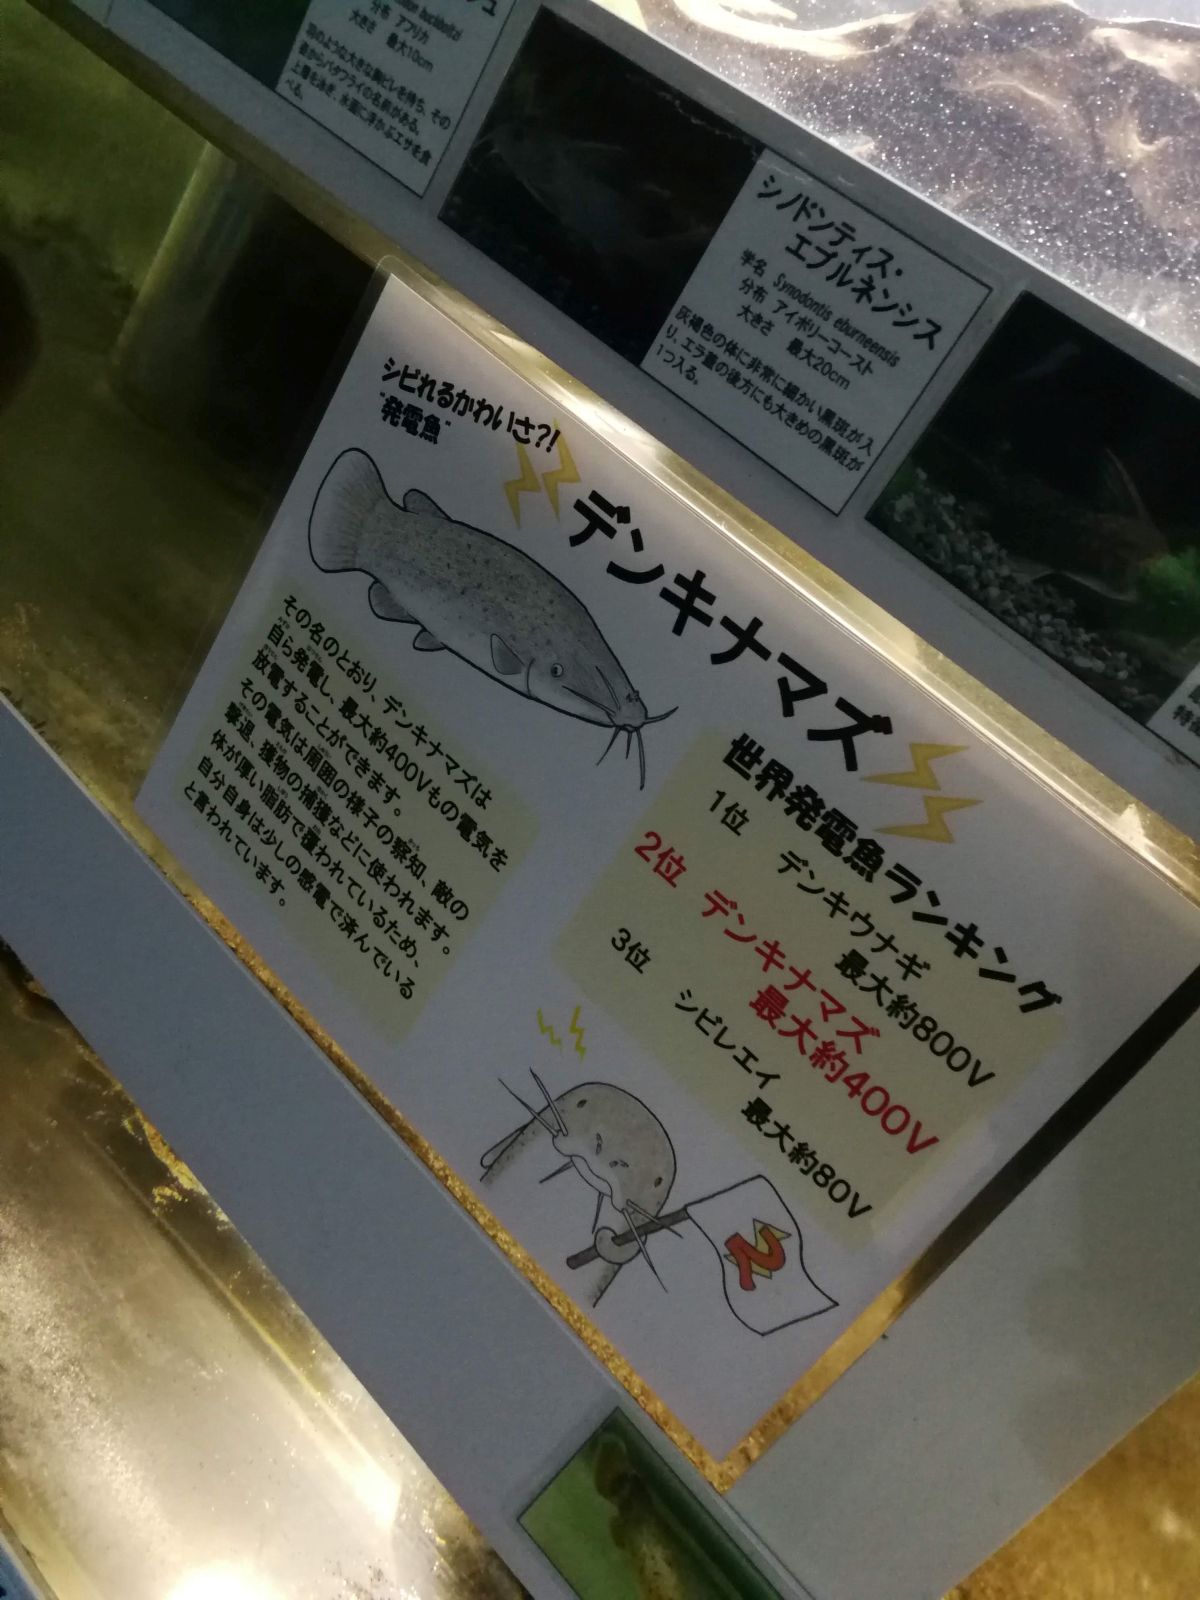 分布 アフリカ
大きさ 最大10cm
羽のような大きな胸ビレを持ち、その
姿からバタフライの名前がある。
上層を泳ぎ、水面に浮かぶエサを食
べる。
シノドンティス・
エブルネンシス
学名 Synodontis eburneensis
分布 アイボリーコースト
大きさ 最大20cm
灰褐色の体に非常に細かい黒斑が入
り、エラ蓋の後方にも大きめの黒斑が
1つ入る。
シビれるかわいさ?!
"発電魚"
デンキナマズ
その名のとおり、デンキナマズは
自ら発電し、最大約400Vもの電気を
放電することができます。
その電気は周囲の様子の察知、敵の
撃退、獲物の捕獲などに使われます。
体が厚い脂肪で覆われているため、
自分自身は少しの感電で済んでいる
と言われています。
世界発電魚ランキング
1位 デンキウナギ
最大約800V
2位 デンキナマズ
最大約400V
3位 シビレエイ
最大約80V
2